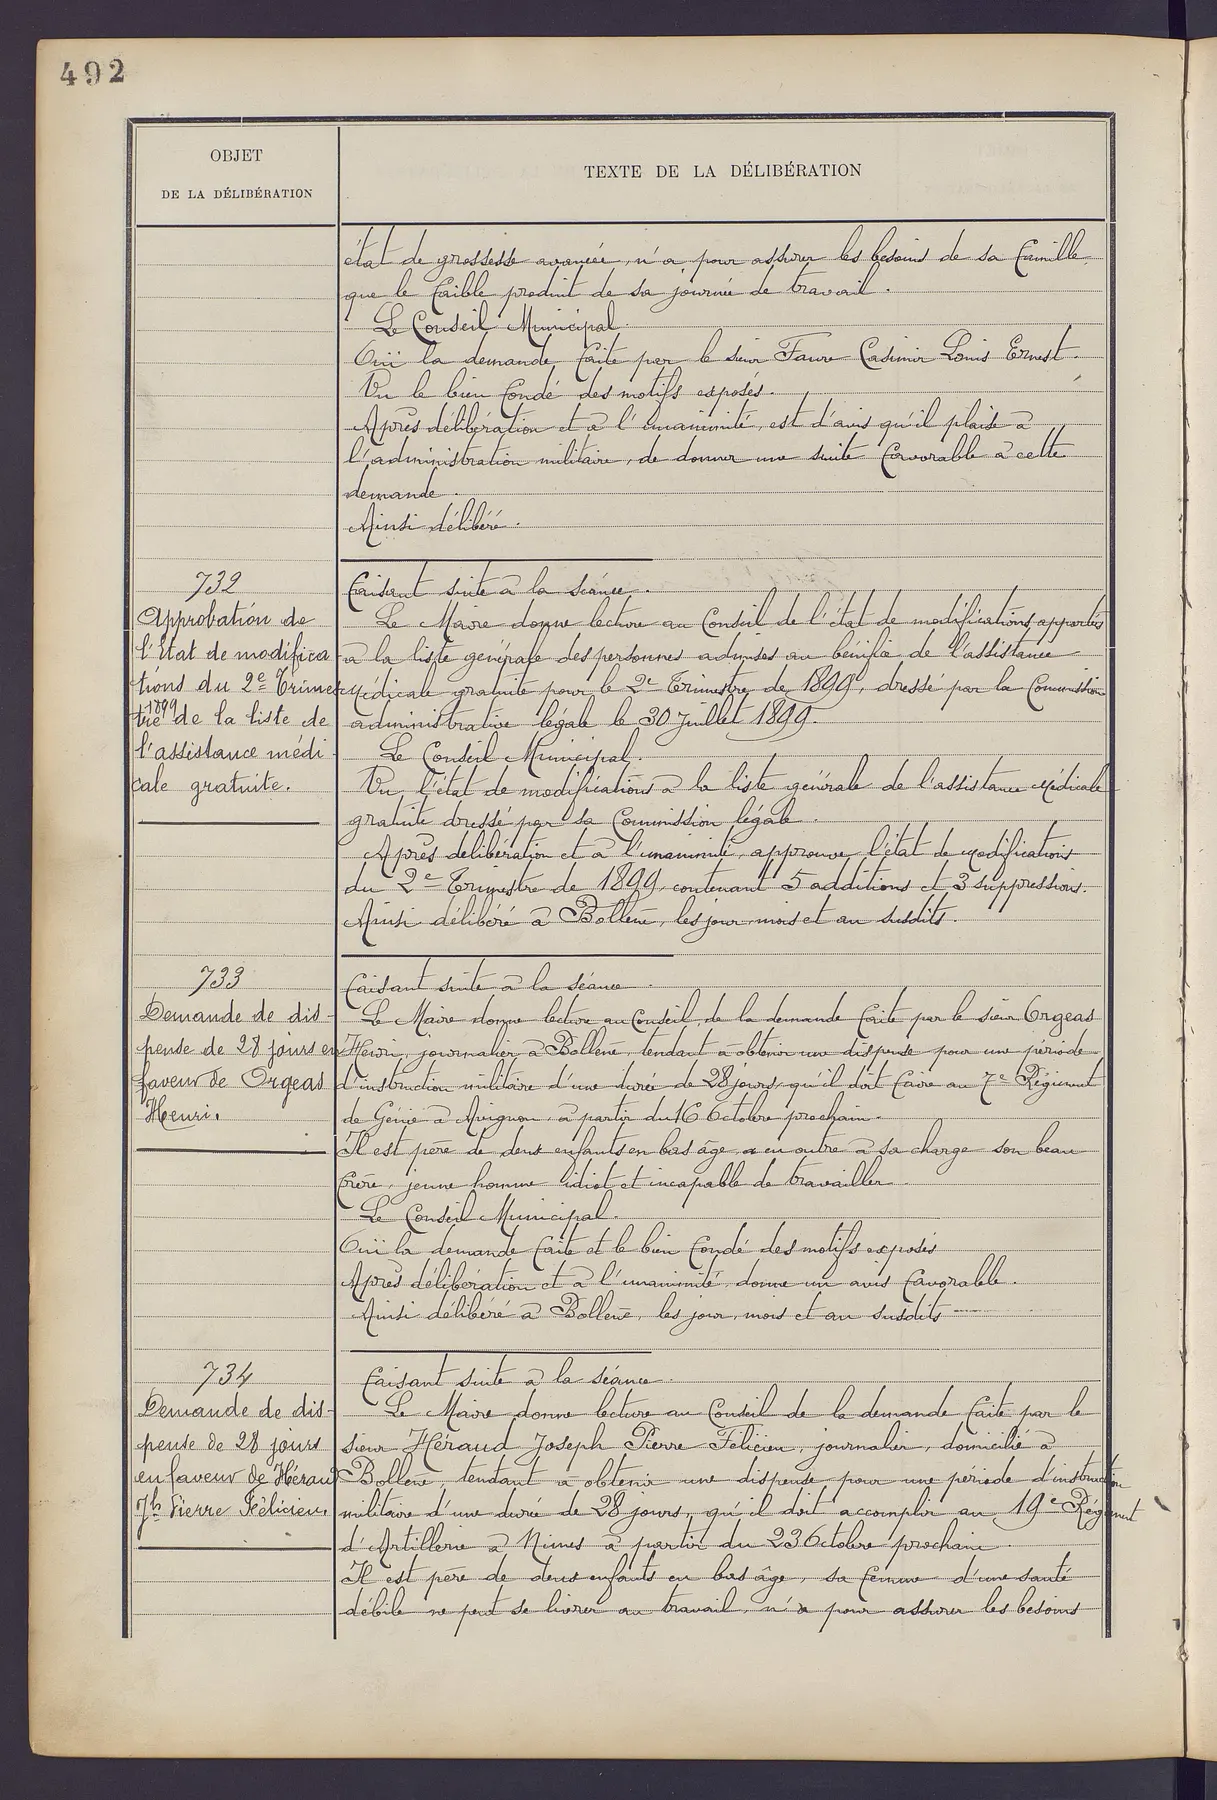 492
OBJET
DE LA DÉLIBÉRATION
TEXTE DE LA DÉLIBÉRATION
état de grossesse avancée, n'a, pour assurer les besoins de sa famille,
que le faible produit de sa journée de travail.
Le Conseil Municipal
Ouï la demande faite par le sieur Favre Casimir Louis Ernest.
Vu le bien fondé des motifs exposés.
Après délibération et à l'unanimité, est d'avis qu'il plaise à
l'administration militaire, de donner une suite favorable à cette
demande.
Ainsi délibéré.
732
Approbation de
l'État de modifica-
tions du 2e Trimes-
tre 1899 de la liste de
l'assistance médi-
cale gratuite.
Faisant suite à la séance.
Le Maire donne lecture au Conseil de l'état de modifications apportées
à la liste générale des personnes admises au bénéfice de l'assistance
Médicale gratuite pour le 2e Trimestre de 1899, dressé par la Commission
administrative légale le 30 Juillet 1899.
Le Conseil Municipal.
Vu l'état de modifications à la liste générale de l'assistance Médicale
gratuite dressé par sa Commission légale.
Après délibération et à l'unanimité, approuve l'état de modifications
du 2e Trimestre de 1899, contenant 5 additions et 3 suppressions.
Ainsi délibéré à Bollène, les jour, mois et an susdits.
733
Demande de dis-
pense de 28 jours en
faveur de Orgeas
Henri.
Faisant suite à la séance.
Le Maire donne lecture au Conseil, de la demande faite par le sieur Orgeas
Henri, journalier à Bollène, tendant à obtenir une dispense pour une période
d'instruction militaire d'une durée de 28 jours, qu'il doit faire au 7e Régiment
de Génie à Avignon, à partir du 16 Octobre prochain.
Il est père de deux enfants en bas âge, a en outre à sa charge son beau
frère, jeune homme idiot et incapable de travailler.
Le Conseil Municipal.
Ouï la demande faite et le bien fondé des motifs exposés
Après délibération et à l'unanimité, donne un avis favorable.
Ainsi délibéré à Bollène, les jour, mois et an susdits
734
Demande de dis-
pense de 28 jours
en faveur de Héraud
Jh Pierre Félicien.
Faisant suite à la séance.
Le Maire donne lecture au Conseil de la demande faite par le
sieur Héraud Joseph Pierre Félicien, journalier, domicilié à
Bollène, tendant à obtenir une dispense pour une période d'instruction
militaire d'une durée de 28 jours, qu'il doit accomplir au 19e Régiment
d'Artillerie à Nimes à partir du 23 Octobre prochain.
Il est père de deux enfants en bas âge, sa femme d'une santé
débile ne peut se livrer au travail, n'a pour assurer les besoins